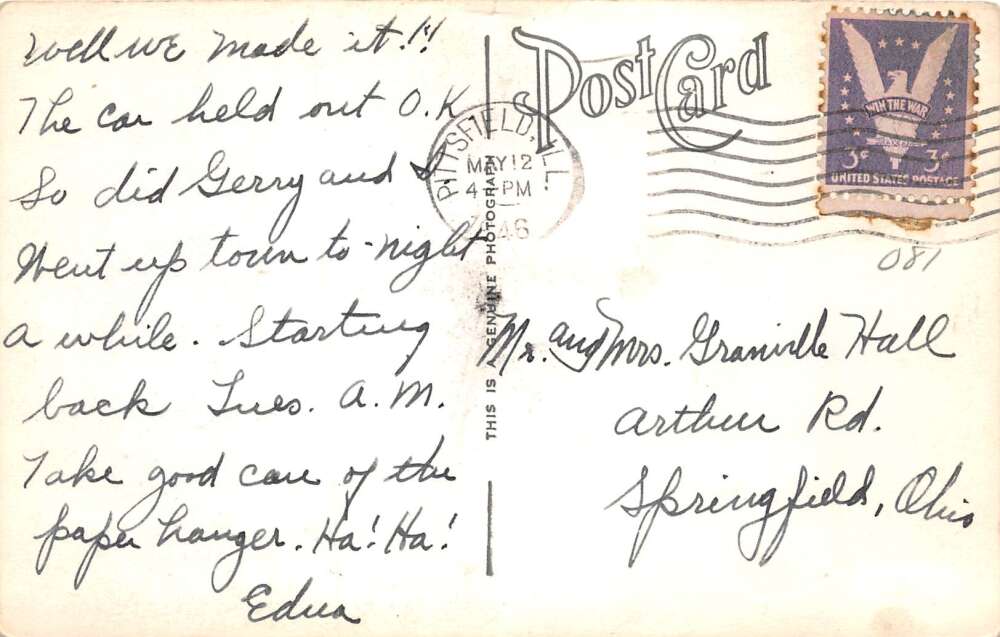 Well we made it.!!
The car held out O.K
So did Gerry and I
Went up town to-night
a while. Starting
back Tues. A.M.
Take good care of the
paper hanger. Ha! Ha!
Edna
Post Card
PITTSFIELD, ILL.
MAY 12
4 - PM
1946
THIS IS A GENUINE PHOTOGRAPH
WIN THE WAR
3¢ 3¢
UNITED STATES POSTAGE
081
Mr. and Mrs. Granville Hall
Arthur Rd.
Springfield, Ohio